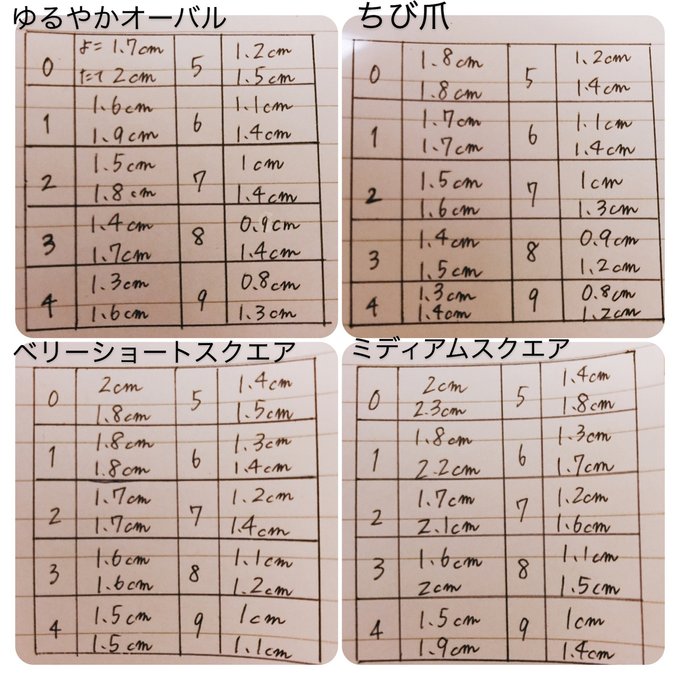 ゆるやかオーバル
0 よこ 1.7cm たて 2cm 5 1.2cm 1.5cm
1 1.6cm 1.9cm 6 1.1cm 1.4cm
2 1.5cm 1.8cm 7 1cm 1.4cm
3 1.4cm 1.7cm 8 0.9cm 1.4cm
4 1.3cm 1.6cm 9 0.8cm 1.3cm
ちび爪
0 1.8cm 1.8cm 5 1.2cm 1.4cm
1 1.7cm 1.7cm 6 1.1cm 1.4cm
2 1.5cm 1.6cm 7 1cm 1.3cm
3 1.4cm 1.5cm 8 0.9cm 1.2cm
4 1.3cm 1.4cm 9 0.8cm 1.2cm
ベリーショートスクエア
0 2cm 1.8cm 5 1.4cm 1.5cm
1 1.8cm 1.8cm 6 1.3cm 1.4cm
2 1.7cm 1.7cm 7 1.2cm 1.4cm
3 1.6cm 1.6cm 8 1.1cm 1.2cm
4 1.5cm 1.5cm 9 1cm 1.1cm
ミディアムスクエア
0 2cm 2.3cm 5 1.4cm 1.8cm
1 1.8cm 2.2cm 6 1.3cm 1.7cm
2 1.7cm 2.1cm 7 1.2cm 1.6cm
3 1.6cm 2cm 8 1.1cm 1.5cm
4 1.5cm 1.9cm 9 1cm 1.4cm